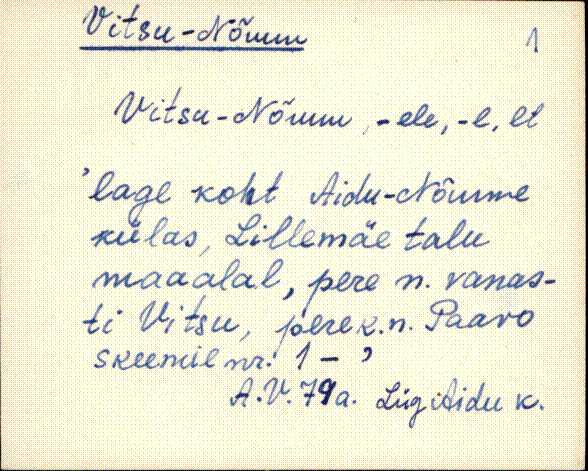 Vitsu-Nõmm
1
Vitsu-Nõmm, -ele, -l, lt
'lage koht Aidu-Nõmme
külas, Lillemäe talu
maaalal, pere n. vanas-
ti Vitsu, perek.n. Paavo
skeemil nr. 1 - '
A.V. 79a. Lüg Aidu k.